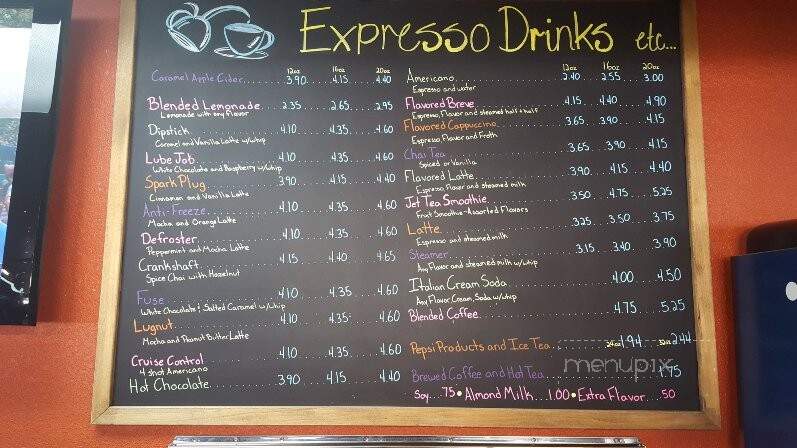 Expresso Drinks etc...
12oz 16oz 20oz
Caramel Apple Cider 3.90 4.15 4.40
Blended Lemonade 2.35 2.65 2.95
Lemonade with any flavor
Dipstick 4.10 4.35 4.60
Caramel and Vanilla Latte w/whip
Lube Job 4.10 4.35 4.60
White Chocolate and Raspberry w/whip
Spark Plug 3.90 4.15 4.40
Cinnamon and Vanilla Latte
Anti-Freeze 4.10 4.35 4.60
Mocha and Orange Latte
Defroster 4.10 4.35 4.60
Peppermint and Mocha Latte
Crankshaft 4.15 4.40 4.65
Spice Chai with Hazelnut
Fuse 4.10 4.35 4.60
White Chocolate & Salted Caramel w/whip
Lugnut 4.10 4.35 4.60
Mocha and Peanut Butter Latte
Cruise Control 4.10 4.35 4.60
4 Shot Americano
Hot Chocolate 3.90 4.15 4.40
12oz 16oz 20oz
Americano 2.40 2.55 3.00
Espresso and water
Flavored Breve 4.15 4.40 4.90
Espresso, Flavor and steamed half & half
Flavored Cappuccino 3.65 3.90 4.15
Espresso, Flavor and Froth
Chai Tea 3.65 3.90 4.15
Spiced or Vanilla
Flavored Latte 3.90 4.15 4.40
Espresso, Flavor and steamed milk
Jet Tea Smoothie 3.50 4.75 5.25
Fruit Smoothie-Assorted Flavors
Latte 3.25 3.50 3.75
Espresso and steamed milk
Steamer 3.15 3.40 3.90
Any Flavor and steamed milk w/whip
Italian Cream Soda 4.00 4.50
Any Flavor, Cream, Soda w/whip
Blended Coffee 4.75 5.25
Pepsi Products and Ice Tea 24oz 1.94 32oz 2.44
menupix
Brewed Coffee and Hot Tea 1.75
Soy .75 • Almond Milk 1.00 • Extra Flavor .50